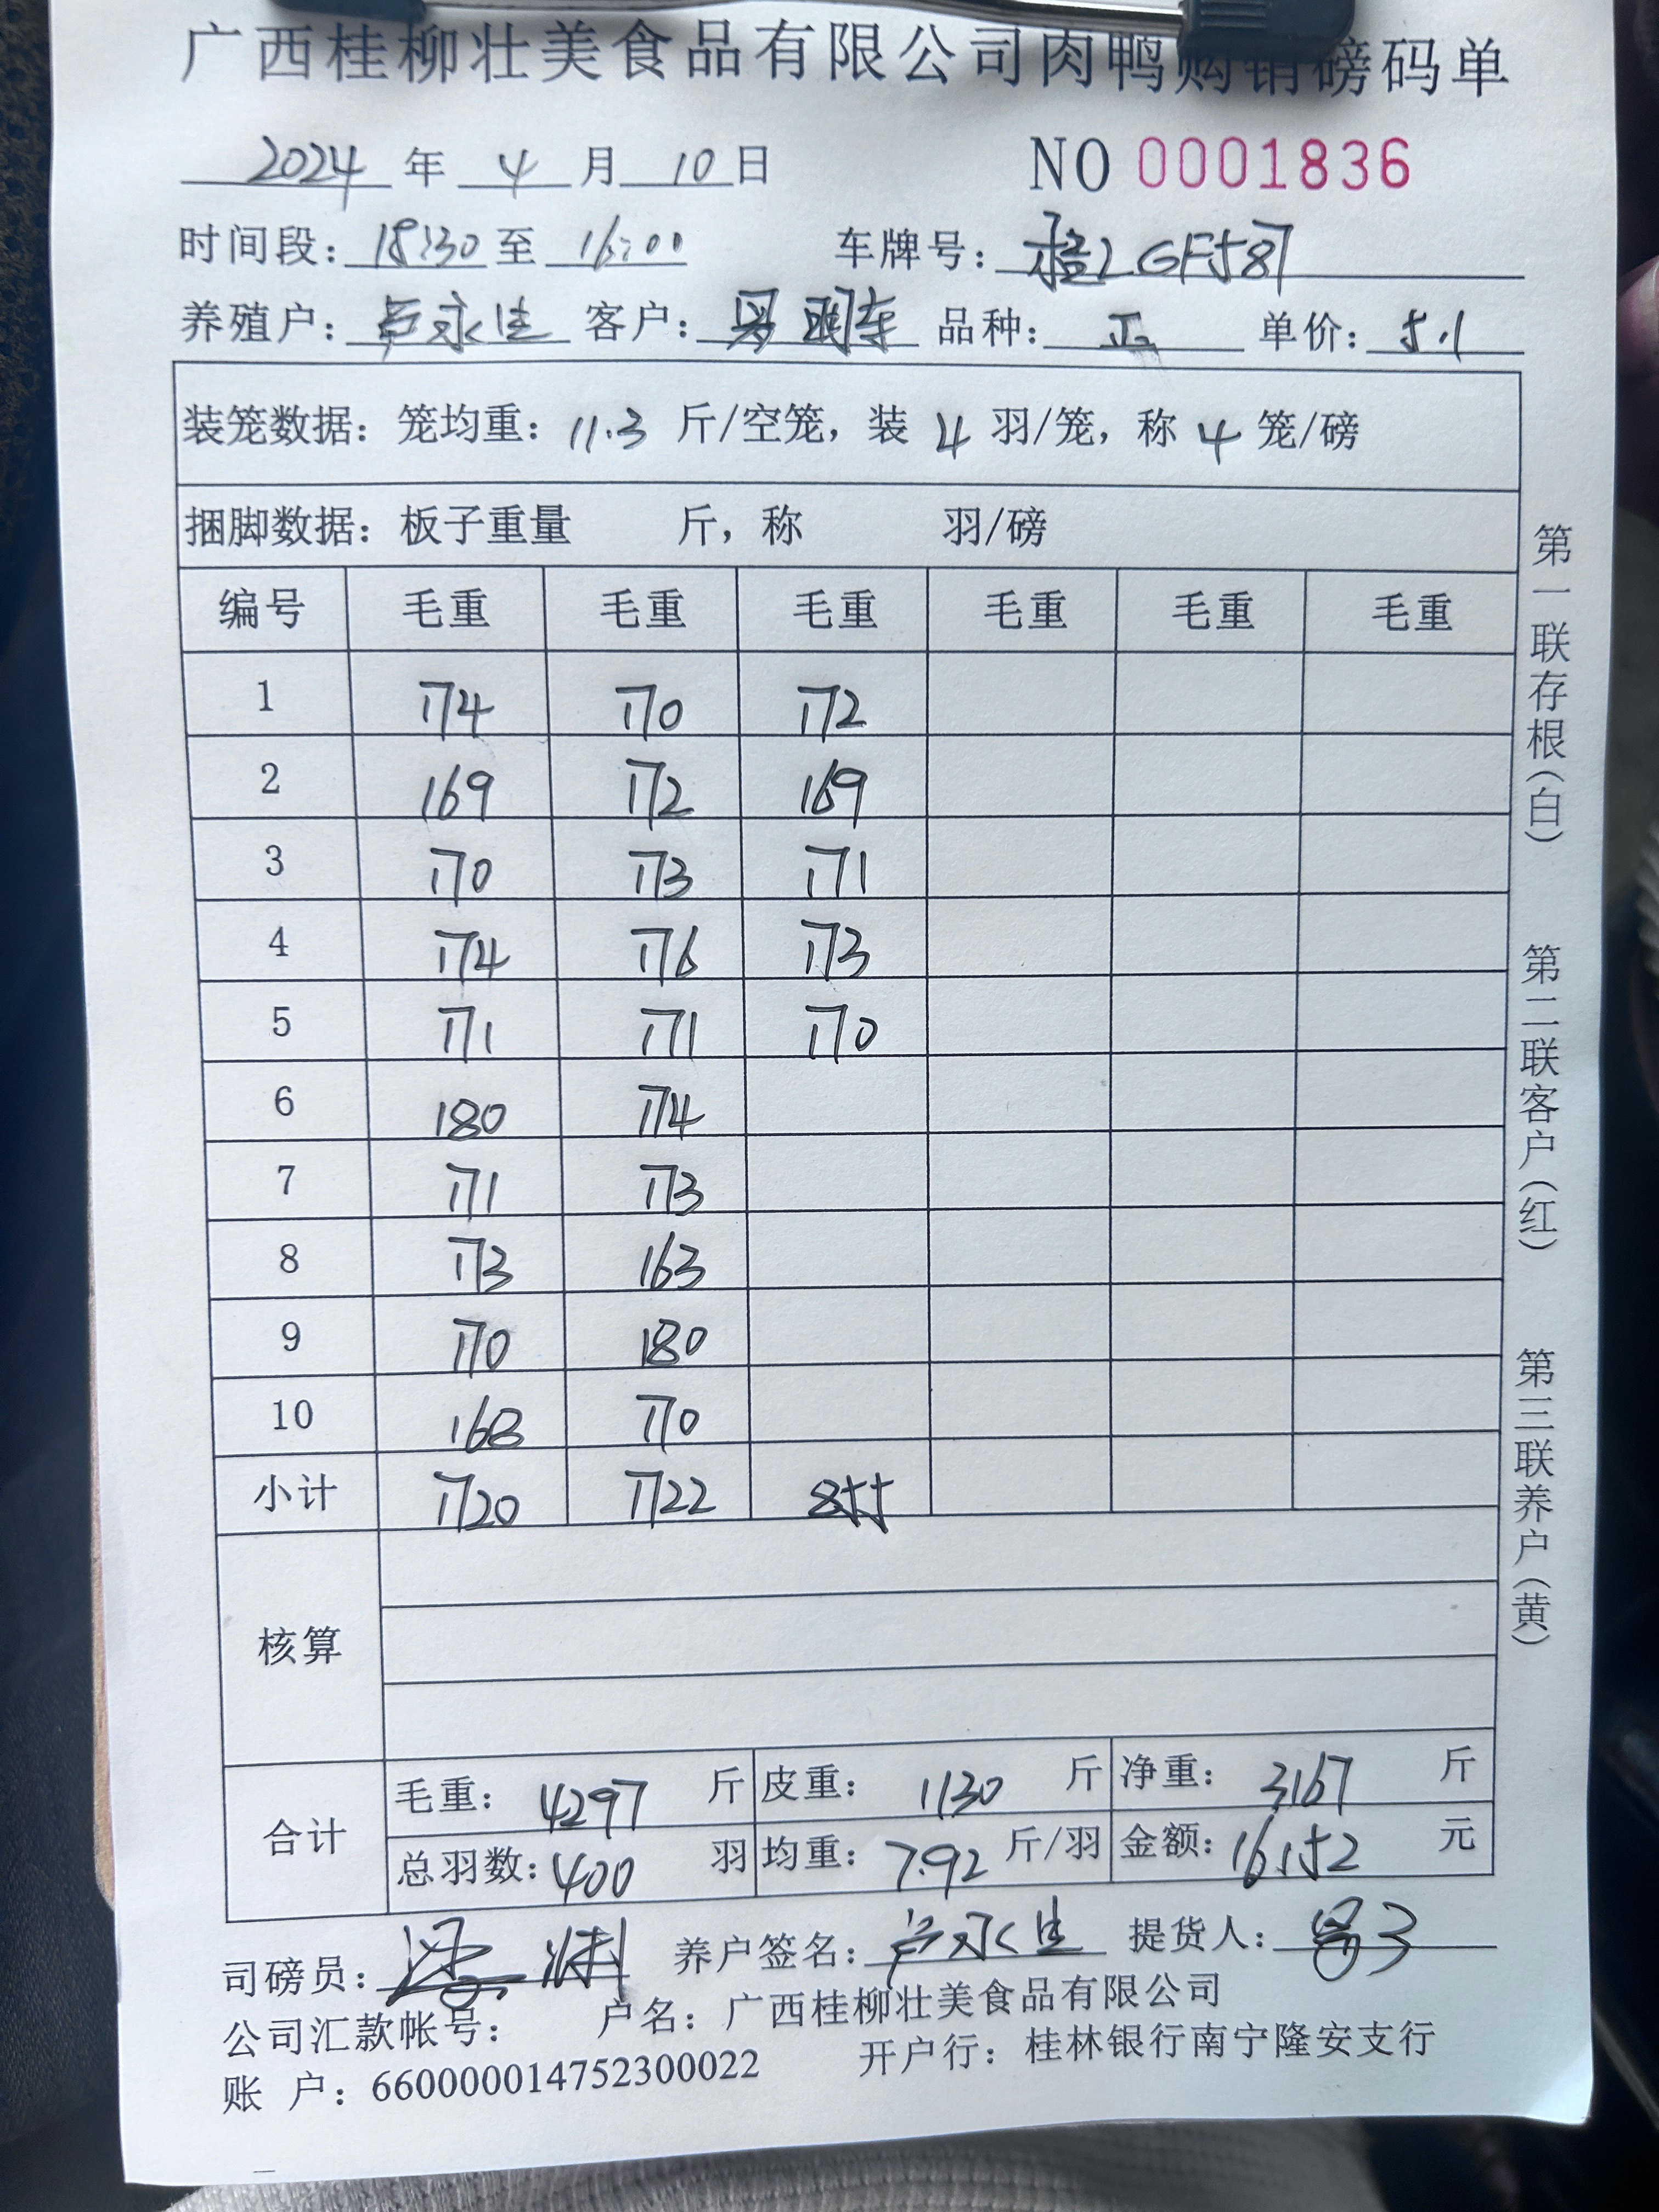 广西桂柳壮美食品有限公司肉鸭购销磅码单
2024年 4月 10日 NO 0001836
时间段:15:30至 16:00 车牌号:桂LGF587
养殖户:卢永生 客户: 品种: 正 单价:5.1
装笼数据:笼均重:11.3 斤/空笼,装 4 羽/笼,称 4 笼/磅
捆脚数据:板子重量 斤,称 羽/磅
编号 毛重 毛重 毛重 毛重 毛重 毛重
1 174 170 172
2 169 172 169
3 170 173 171
4 174 176 173
5 171 171 170
6 180 174
7 171 173
8 173 163
9 170 180
10 168 170
小计 1720 1722 855
核算
合计
毛重: 4297 斤 皮重: 1130 斤 净重: 3167 斤
总羽数:400 羽 均重:7.92 斤/羽 金额:16152 元
司磅员: 养户签名:卢永生 提货人:
公司汇款帐号: 户名:广西桂柳壮美食品有限公司
账 户:660000014752300022 开户行:桂林银行南宁隆安支行
第一联存根(白) 第二联客户(红) 第三联养户(黄)